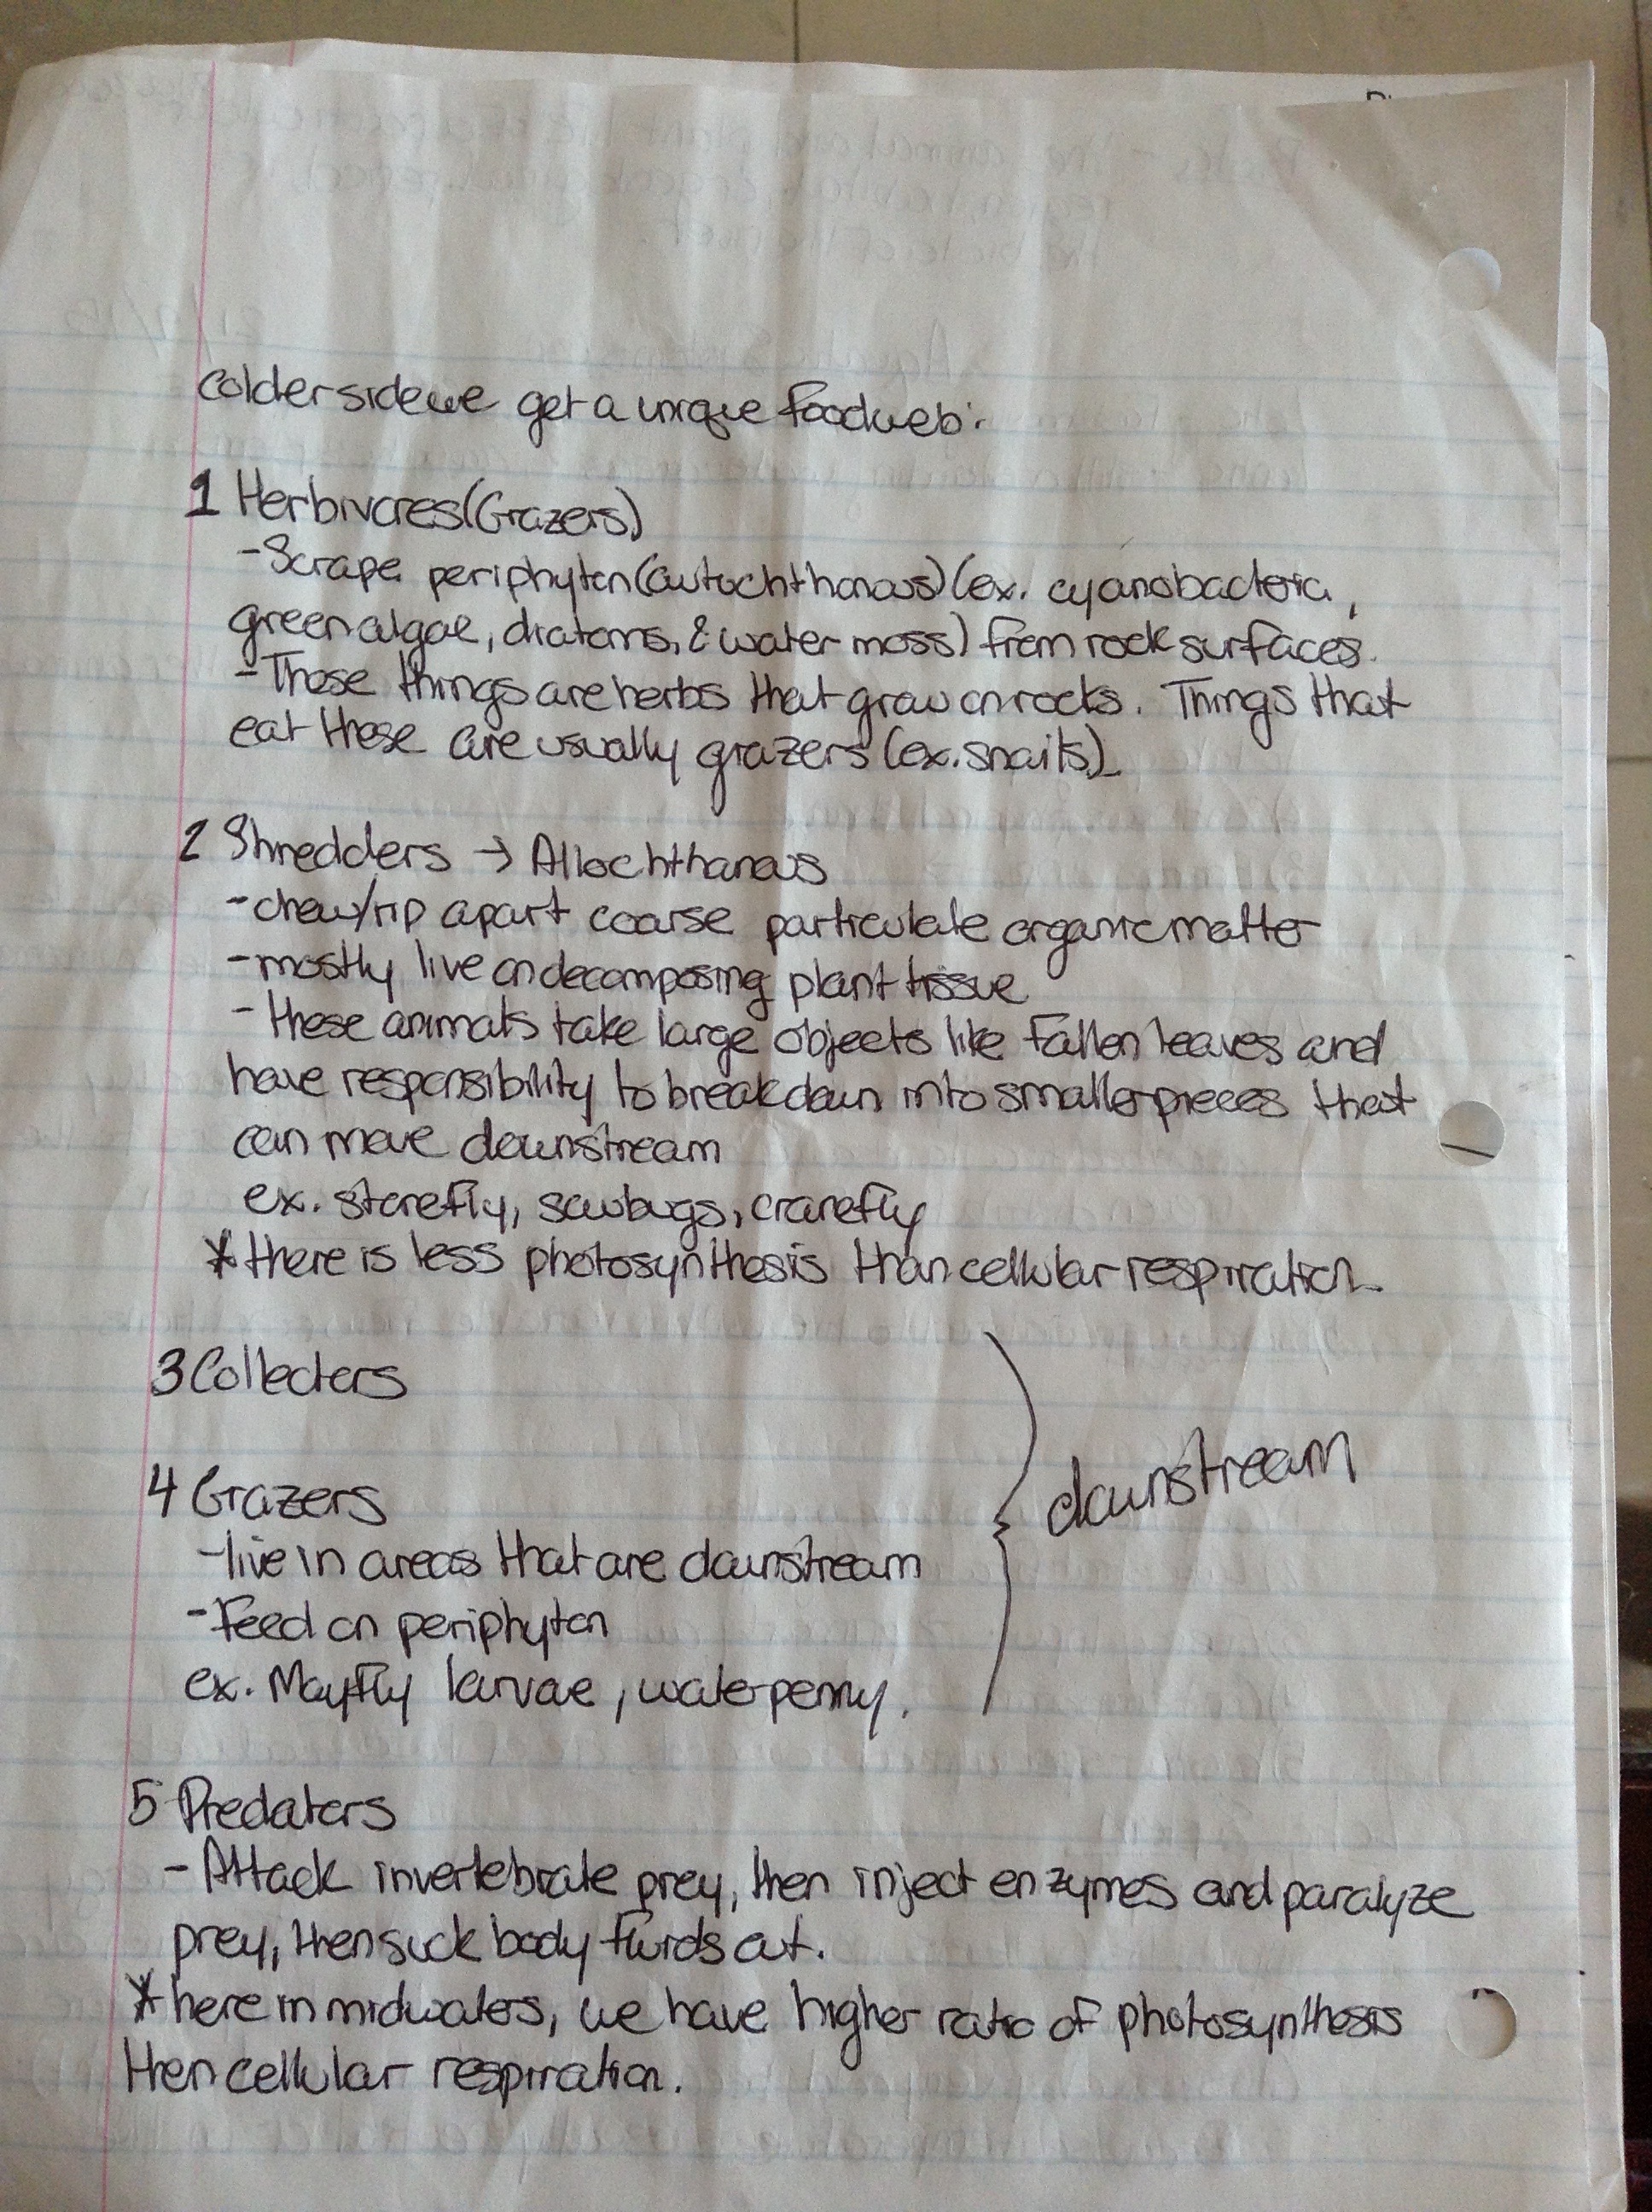 colder side we get a unique foodweb:
1 Herbivores (Grazers)
- Scrape periphyton (autochthonous) (ex. cyanobacteria,
green algae, diatoms, & water moss) from rock surfaces.
- These things are herbs that grow on rocks. Things that
eat these are usually grazers (ex. snails).
2 Shredders → Allochthonous
- chew/rip apart coarse particulate organic matter
- mostly live on decomposing plant tissue
- these animals take large objects like fallen leaves and
have responsibility to breakdown into smaller pieces that
can move downstream
ex. stonefly, sowbugs, cranefly
* there is less photosynthesis than cellular respiration.
3 Collectors
4 Grazers
- live in areas that are downstream
- Feed on periphyton
ex. Mayfly larvae, waterpenny.
downstream
5 Predators
- Attack invertebrate prey, then inject enzymes and paralyze
prey, then suck body fluids out.
* here in midwaters, we have higher ratio of photosynthesis
then cellular respiration.